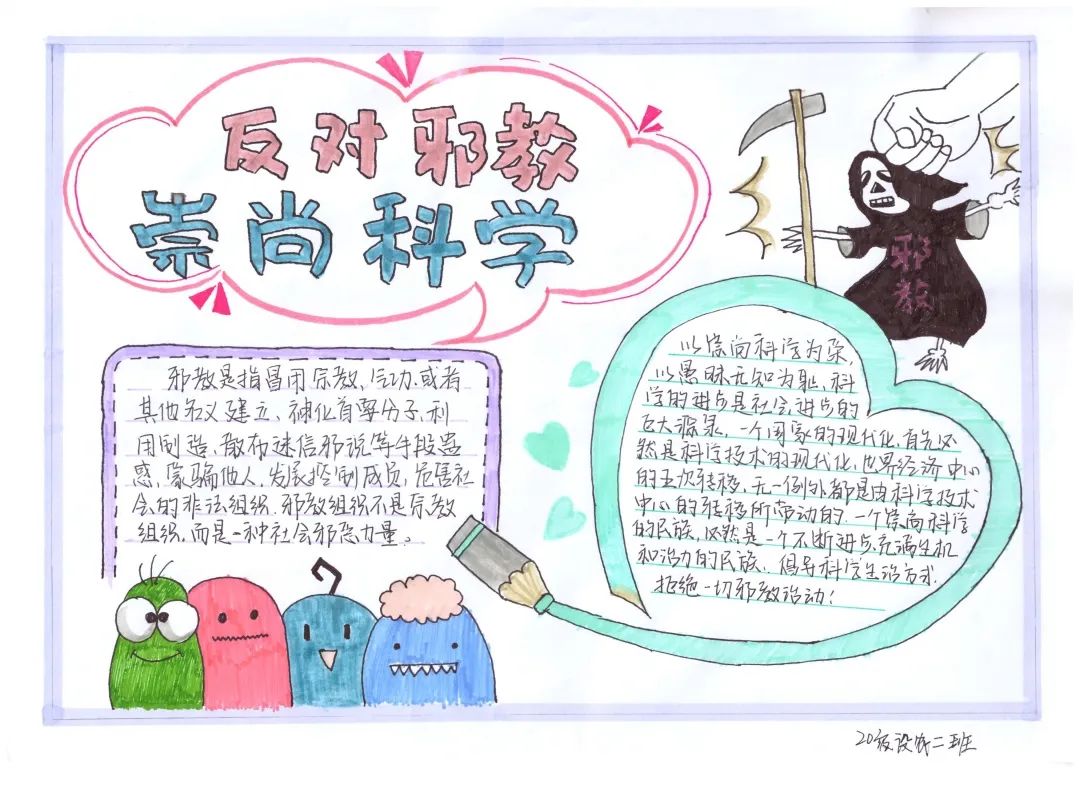 反对邪教
崇尚科学
邪教
邪教是指冒用宗教、气功、或者
其他名义建立、神化首要分子、利
用制造、散布迷信邪说等手段蛊
惑、蒙骗他人,发展控制成员,危害社
会的非法组织.邪教组织不是宗教
组织,而是一种社会邪恶力量。
以崇尚科学为荣,
以愚昧无知为耻,科
学的进步是社会进步的
巨大源泉,一个国家的现代化,首先必
然是科学技术的现代化,世界经济中心
的五次转移,无一例外都是由科学技术
中心的转移所带动的.一个崇尚科学
的民族,必然是一个不断进步,充满生机
和活力的民族,倡导科学生活方式,
拒绝一切邪教活动!
20级设农二班